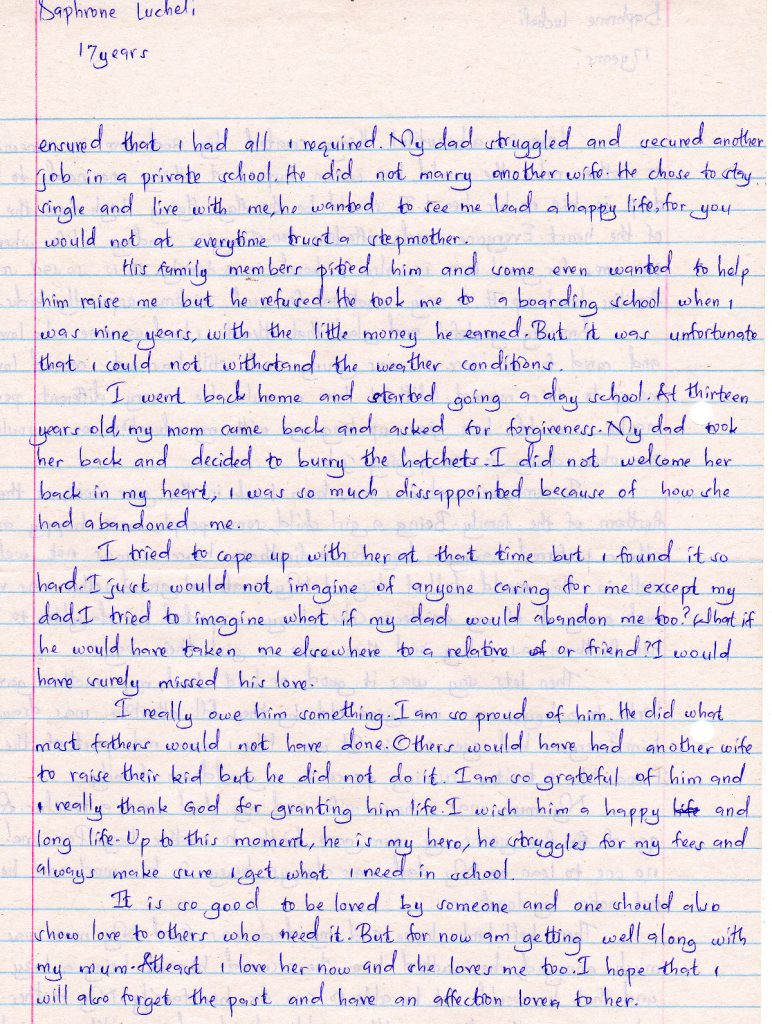 Saphrone Lucheli
17years
ensured that i had all i required. My dad struggled and secured another
job in a private school. He did not marry another wife. He chose to stay
single and live with me, he wanted to see me lead a happy life, for you
would not at everytime trust a stepmother.
His family members pitied him and some even wanted to help
him raise me but he refused. He took me to a boarding school when i
was nine years, with the little money he earned. But it was unfortunate
that i could not withstand the weather conditions.
I went back home and started going a day school. At thirteen
years old, my mom came back and asked for forgiveness. My dad took
her back and decided to burry the hatchets. I did not welcome her
back in my heart, i was so much dissappointed because of how she
had abandoned me.
I tried to cope up with her at that time but i found it so
hard. I just would not imagine of anyone caring for me except my
dad. I tried to imagine what if my dad would abandon me too? What if
he would have taken me elsewhere to a relative or friend? I would
have surely missed his love.
I really owe him something. I am so proud of him. He did what
most fathers would not have done. Others would have had another wife
to raise their kid but he did not do it. I am so grateful of him and
i really thank God for granting him life. I wish him a happy life and
long life. Up to this moment, he is my hero, he struggles for my fees and
always make sure i get what i need in school.
It is so good to be loved by someone and one should also
show love to others who need it. But for now am getting well along with
my mum. Atleast i love her now and she loves me too. I hope that i
will also forget the past and have an affection lover to her.